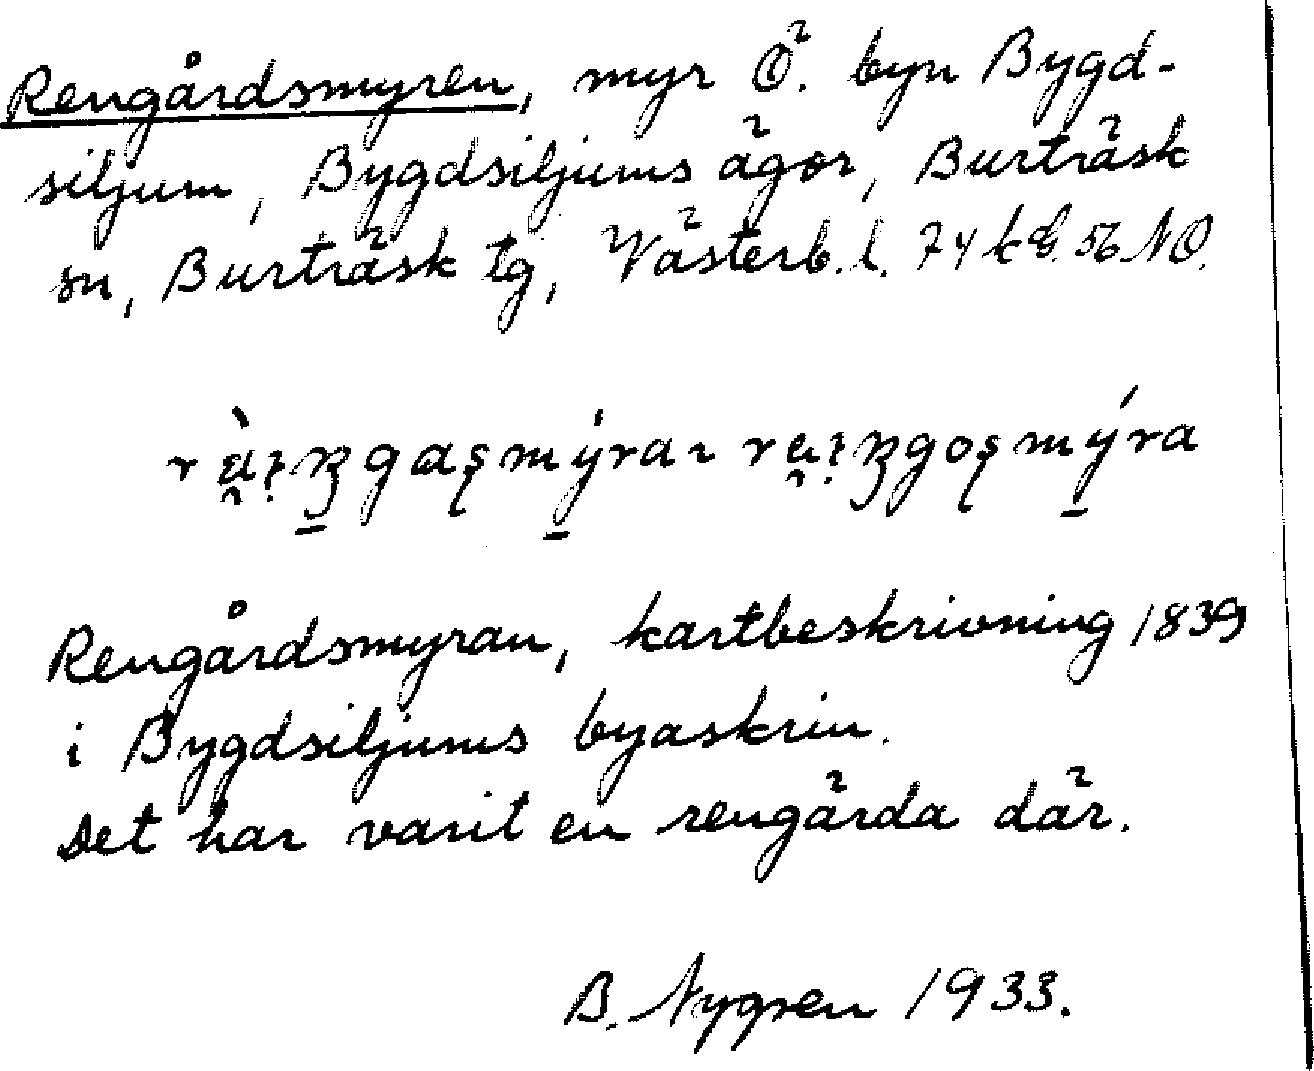 Rengårdsmyren, myr Ö. byn Bygd-
siljum, Bygdsiljums ägor, Burträsk
sn, Burträsk tg, Västerb. l. 74 k 56 NO.
Rengårdsmyran, kartbeskrivning 1839
i Bygdsiljums byaskrin.
Det har varit en rengärda där.
B. Nygren 1933.